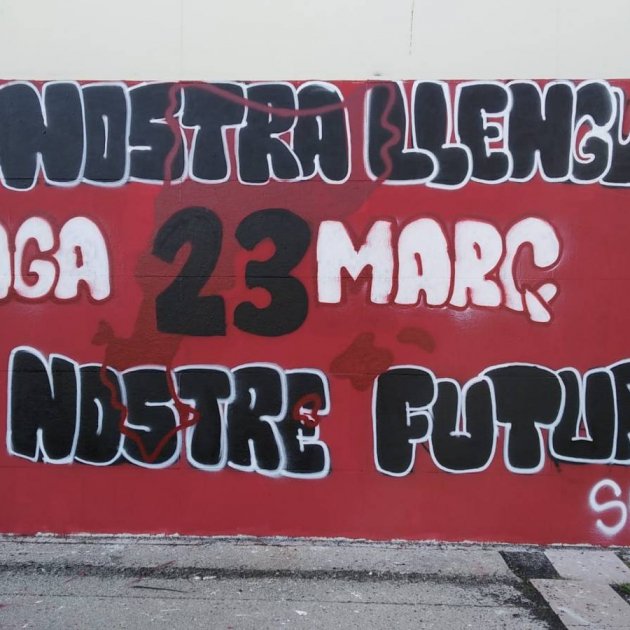 NOSTRA LLENGU
AGA 23 MARÇ
NOSTRE FUTUR
S